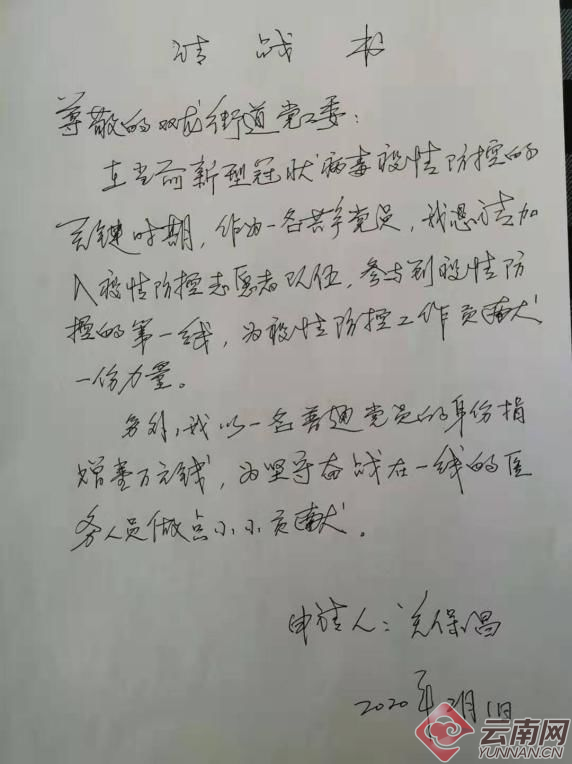 请战书
尊敬的双龙街道党工委：
在当前新型冠状病毒疫情防控的
关键时期，作为一名共产党员，我恳请加
入疫情防控志愿者队伍，参与到疫情防
控的第一线，为疫情防控工作贡献
一份力量。
另外，我以一名普通党员的身份捐
赠壹万元钱，为坚守奋战在一线的医
务人员做点小小贡献。
申请人：保昌
2020年2月1日
云南网
YUNNAN.CN